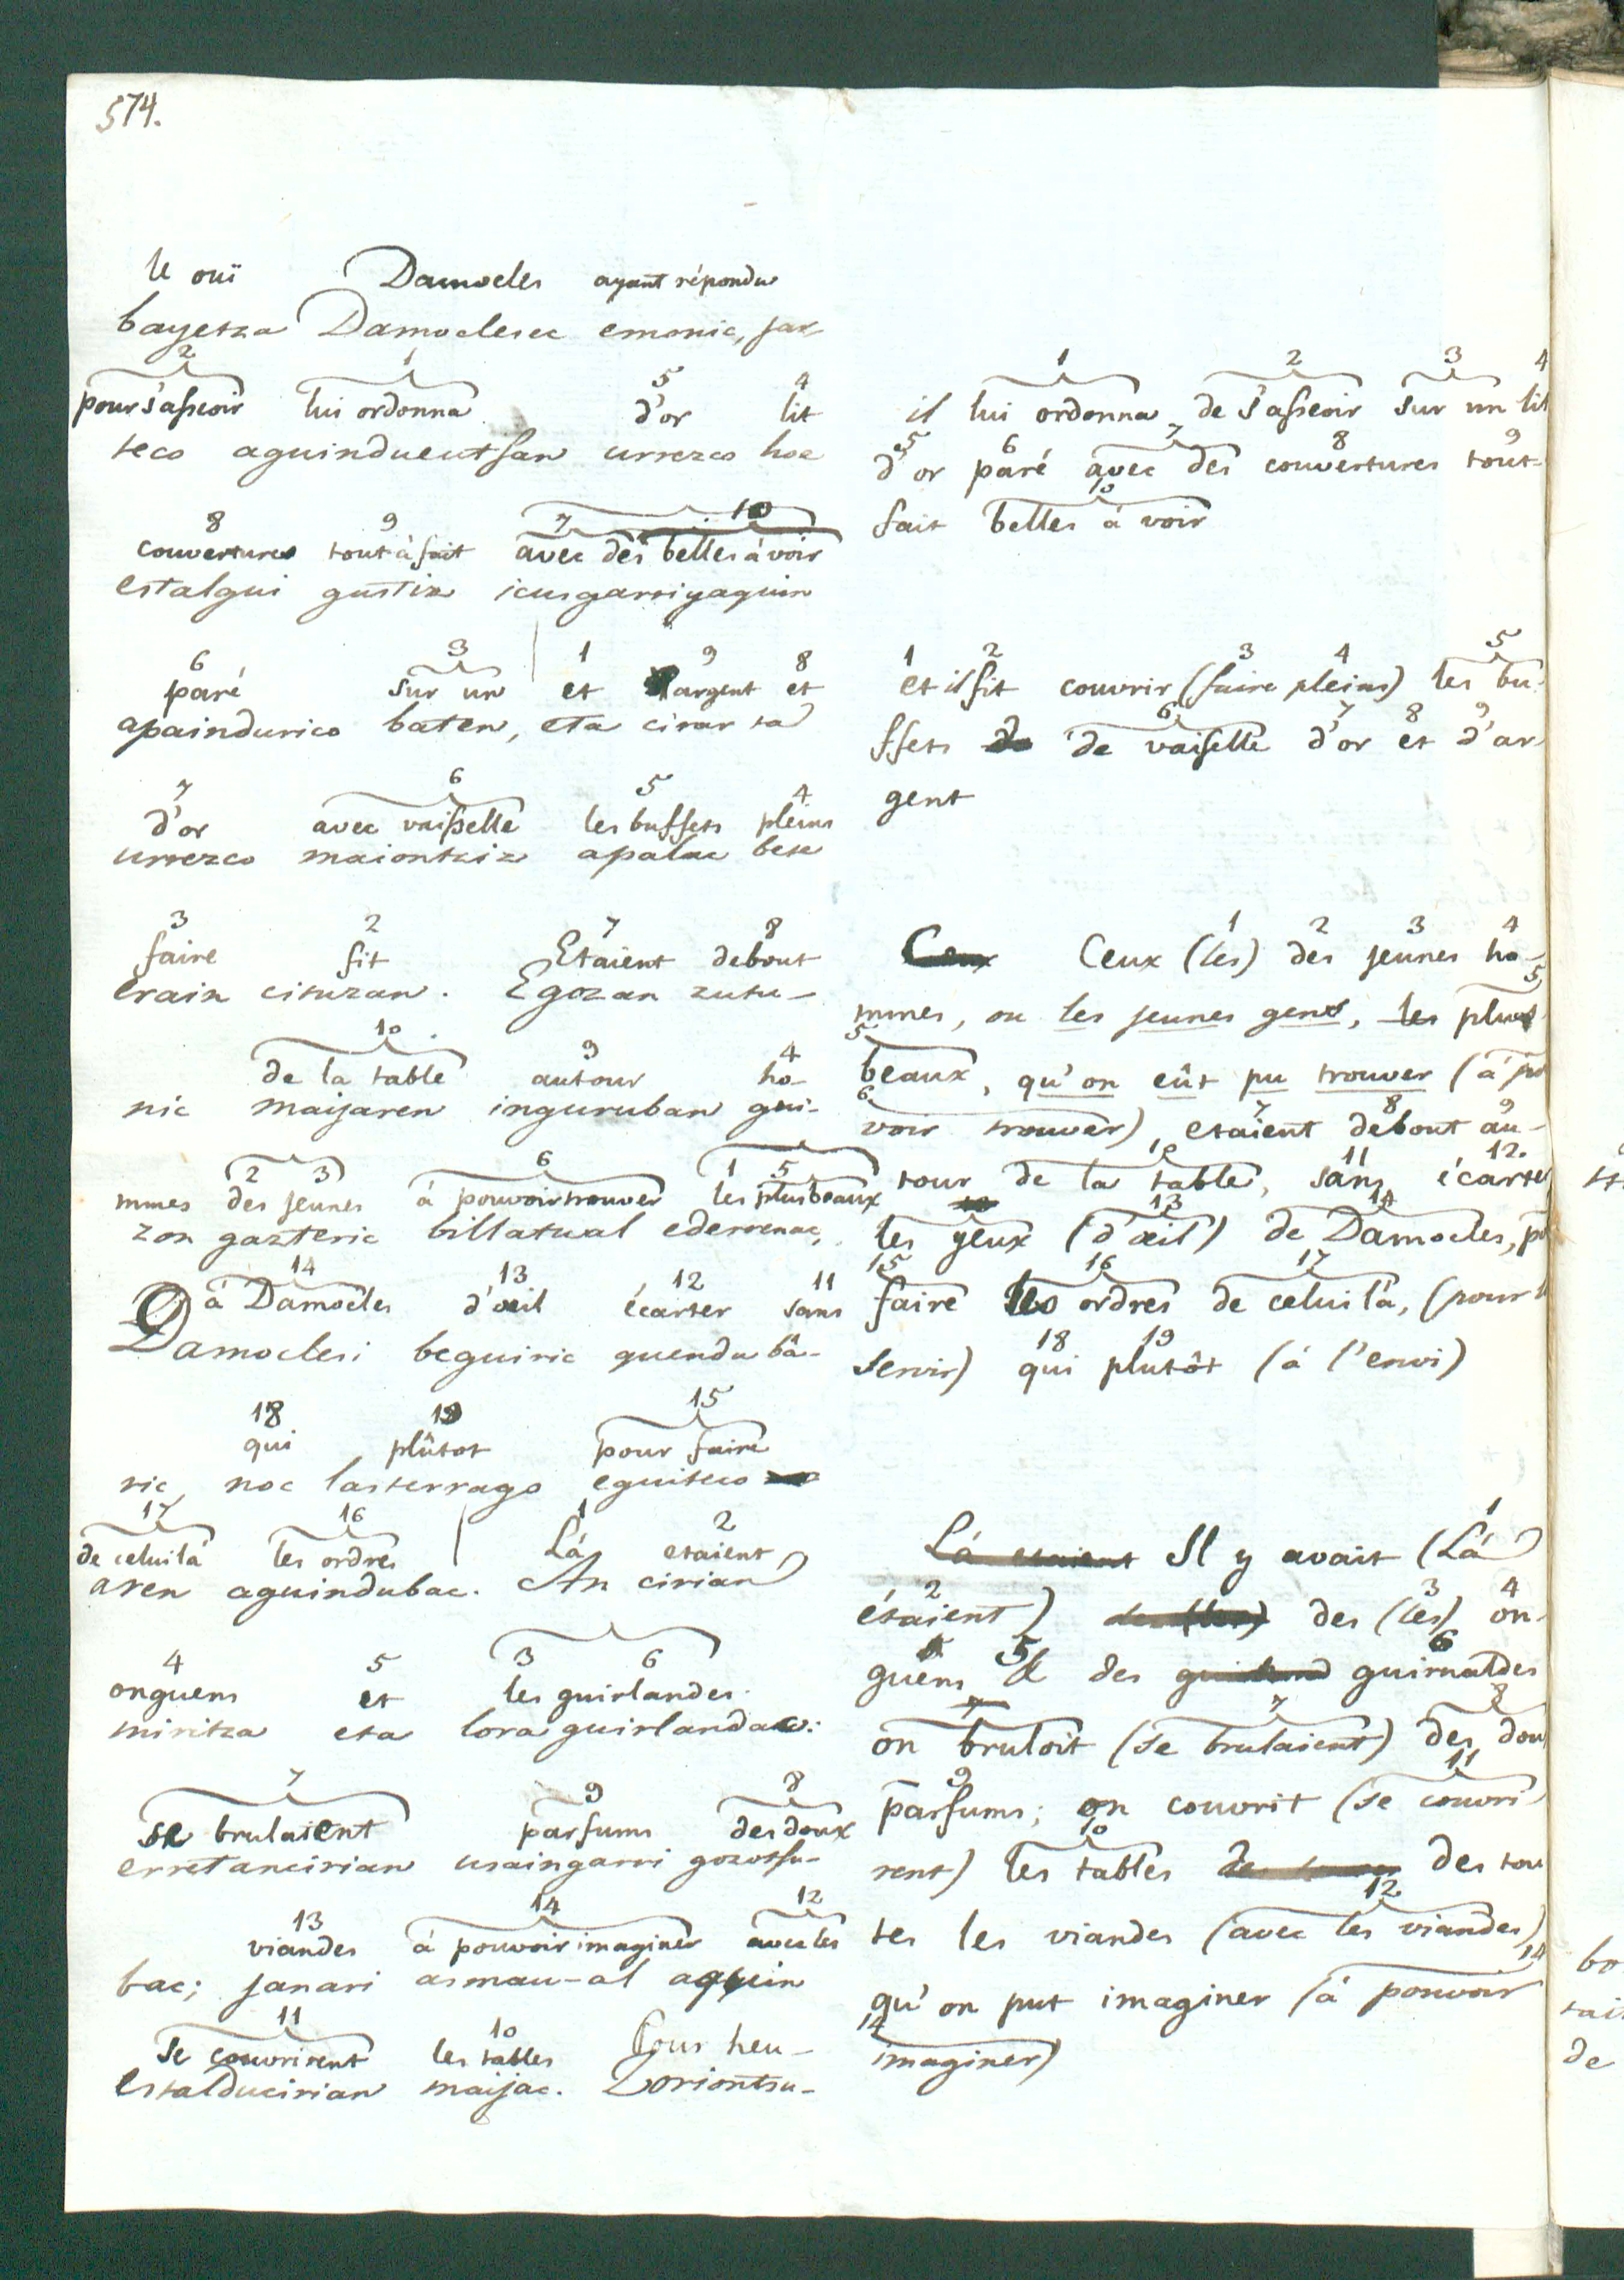 574.
le ouï Damocles ayant répondu
bayetza Damoclesec emonic, jar-
2 1 5 4
pour s'asseoir lui ordonna d'or lit
teco aguindueutsan urrezco hoe
8 9 7 10
couvertures tout à fait avec des belles à voir
estalgui gustiz icusgarriyaquin
6 3 1 9 8
paré sur un et argent et
apaindurico baten, eta cirar ta
7 6 5 4
d'or avec vaisselle les buffets pleins
urrezco maiontziz apalac bete
3 2 7 8
faire fit Etaient debout
erain cituzan. Egozan zutu-
10 9 4
de la table autour ho-
nic maijaren inguruban gui-
2 3 6 1 5
mmes des jeunes à pouvoir trouver les plus beaux
zon gazteric billatual ederrenac,
14 13 12 11
à Damocles d'œil écarter sans
Damoclesi beguiric quendu bâ-
18 19 15
qui plûtot pour faire
ric, noc lasterrago eguiteco
17 16 1 2
de celui là les ordres Là etaient
aren aguindubac. An cirian
4 5 3 6
onguens et les guirlandes.
miritza eta lora guirlandac:
7 9 8
se brulaient parfums des doux
erretancirian usaingarri gozotsu-
13 14 12
viandes à pouvoir imaginer avec les
bac; janari asmau-al aquin
11 10
se couvrirent les tables Pour heu-
estalducirian maijac. Zoriontsu-
1 2 3 4
il lui ordonna de s'asseoir sur un lit
5 6 7 8 9
d'or paré avec des couvertures tout-
10
fait belles à voir
1 2 3 4 5
et il fit couvrir (faire pleins) les bu-
6 7 8 9
ffets de de vaiselle d'or et d'ar-
gent
1 2 3 4
Ceux Ceux (les) des jeunes ho-
5
mmes, ou les jeunes gens, les plus
5
beaux, qu'on eût pu trouver (à pou
6 7 8 9
voir trouver), etaient debout au-
10 11 12.
tour de la table, sans écarter
13 14
les yeux (d'œil) de Damocles,
15 16 17
faire les ordres de celui là, (pour
18 19
servir) qui plutôt (à l'envi)
1
Là etaient Il y avait (Là
2 3 4
étaient) des (les) on-
5 6
guens & des guirnaldes
7 7 8
on bruloit (se brulaient) des dou
9 11
parfums; on couvrit (se couvri
10
rent) les tables des tou
12
tes les viandes (avec les viandes)
14
qu'on put imaginer (à pouvoir
14
imaginer)